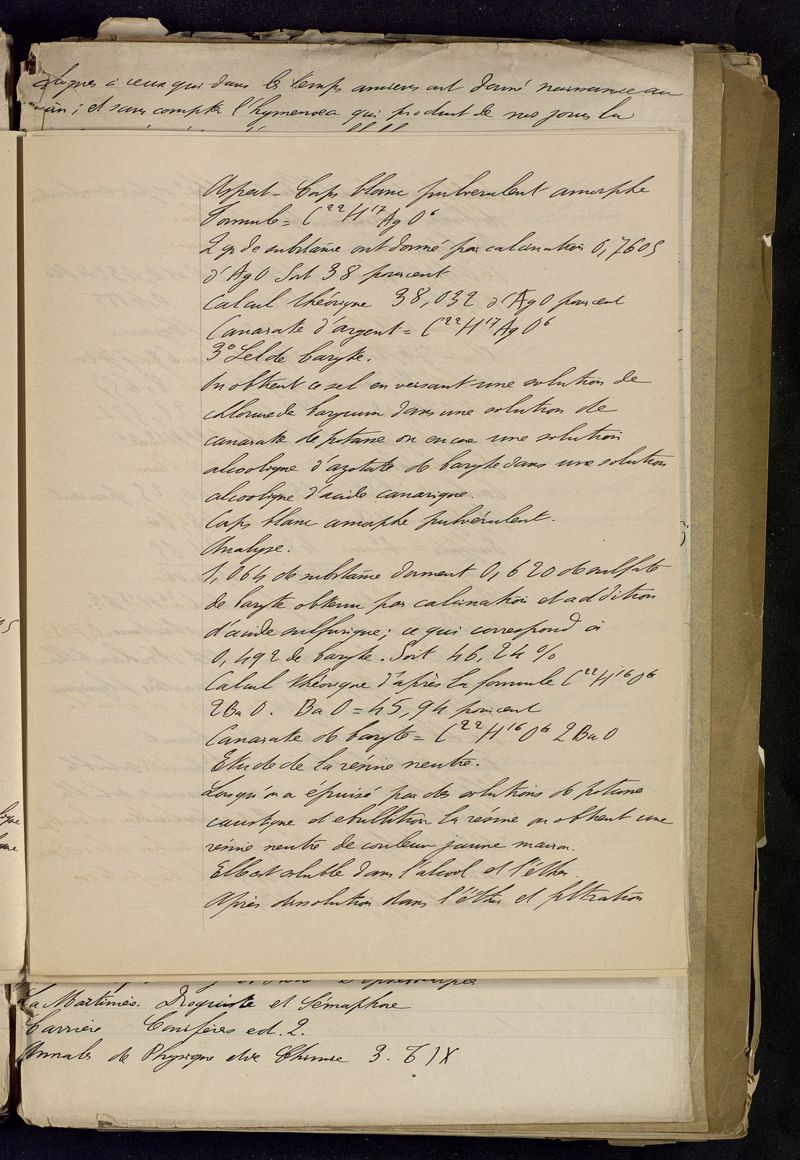 à ceux qui dans les temps anciens ont donné naissance au
; et sans compter l'hymenoea qui produit de nos jours la
Aspect - Corps blanc pulvérulent amorphe
Formule = C²²H¹⁷AgO⁶
2 gr de substance ont donné par calcination 0,7605
d'AgO Soit 38 pourcent
Calcul théorique 38,032 d'AgO pourcent
Canarate d'argent = C²²H¹⁷AgO⁶
3° Sel de baryte.
On obtient ce sel en versant une solution de
chlorure de baryum dans une solution de
canarate de potasse ou encore une solution
alcoolique d'azotate de baryte dans une solution
alcoolique d'acide canarique.
Corps blanc amorphe pulvérulent.
Analyse.
1,064 de substance donnent 0,620 de sulfate
de baryte obtenu par calcination et addition
d'acide sulfurique; ce qui correspond à
0,492 de baryte. Soit 46,24 %
Calcul théorique d'après la formule C²²H¹⁶O⁶
2BaO. BaO = 45,94 pourcent
Canarate de baryte = C²²H¹⁶O⁶ 2BaO
Etude de la résine neutre.
Lorsqu'on a épuisé par des solutions de potasse
caustique et ebullition la resine on obtient une
resine neutre de couleur jaune marron.
Elle est soluble dans l'alcool et l'éther.
Après dissolution dans l'éther et filtration
La Martinière. Droguiste et Sémaphore
Carrière Conifères ed. 2.
Annales de Physique et de Chimie 3. T IX